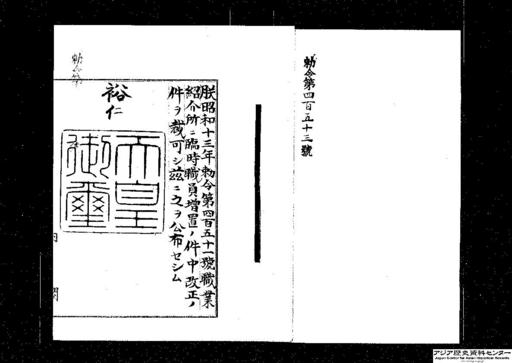 勅令第四百五十三號
朕昭和十三年勅令第四百五十一號職業
紹介所ニ臨時職員増置ノ件中改正ノ
件ヲ裁可シ茲ニ之ヲ公布セシム
裕仁
天皇
御璽
アジア歴史資料センター
Japan Center for Asian Historical Records